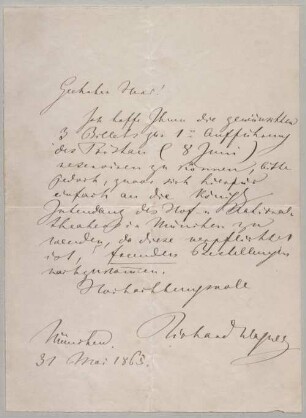 Geehrter Herr!
Ich hoffe Ihnen die gewünschten
3 Billets zur 1ten Aufführung
des Tristan (8 Juni)
reserviren zu können, bitte
jedoch, sich hierfür
einfach an die Königl.
Intendanz des Hof u. National
theaters in München zu
wenden, da diese verpflichtet
ist, fremden Bestellungen
nachzukommen.
Hochachtungsvoll
Richard Wagner
München.
31 Mai 1865.